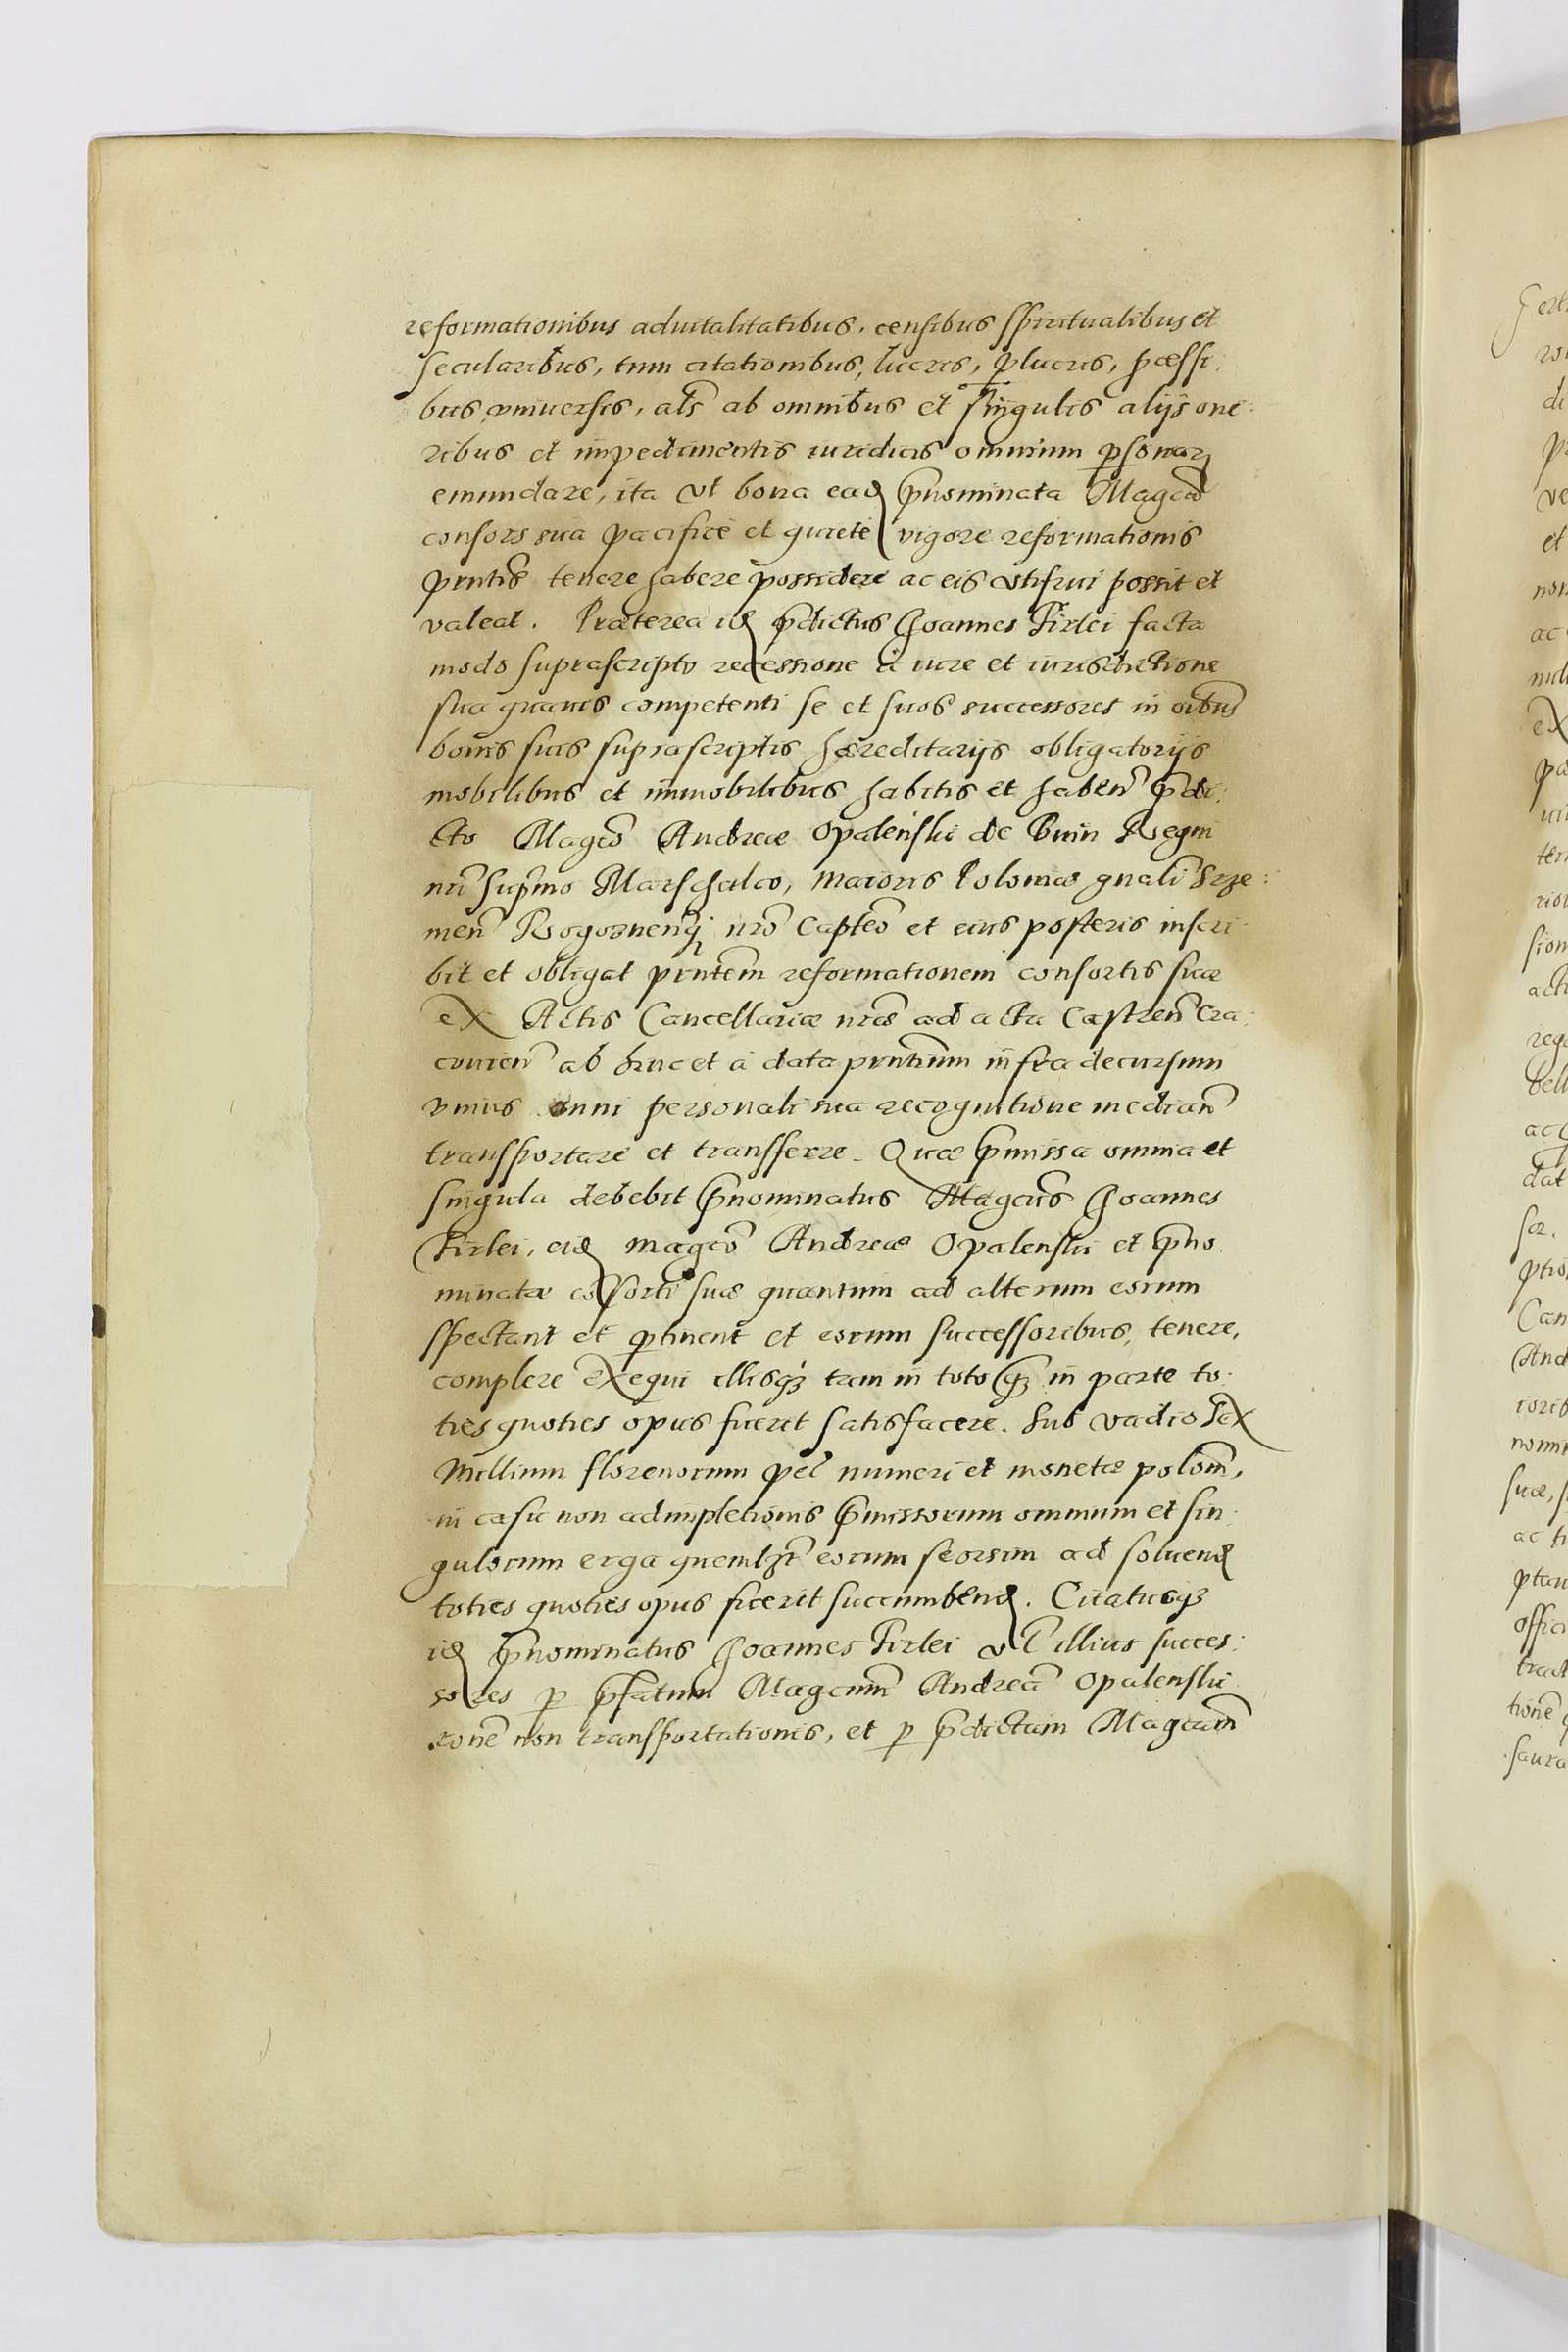 reformationibus aduitalitatibus, censibus spiritualibus et
secularibus, tum citationibus, lucris, plucris, pcessi:
bus vniuersis, als̃ ab omnibus et singulis alijs one:
ribus et impedimentis iuridicis omnium psonarꝝ
emundare, ita vt bona ead p̃nominata Magca
consors sua pacifice et quiete vigore reformationis
pntis̃ tenere habere possidere ac eis vtifrui possit et
valeat. Præterea id p̃dictus Joannes Firlei facta
modo suprascripto recessione à iure et iurisdictione
sua quauis competenti se et suos successores in oibus̃
bonis suis suprascriptis hæreditarijs obligatorijs
mobilibus et immobilibus habitis et haben̄ p̃di:
cto Magco Andreæ Opalenski de Bnin Regni
nri̅ sup̃mo Marschalco, Maioris Poloniæ gnali̅ Srze:
men̄ Rogoznenq̃ nro̅ Capteo̅ et eius posteris inscri:
bit et obligat pntem̅ reformationem consortis suæ
ex Actis Cancellariæ nræ̅ ad acta Castren̄ Cra:
couien̄ ab hinc et à data pntium̅ infra decursum
vnius anni personali sua recognitione median̄
transportare et transferre. Quæ p̃missa omnia et
singula debebit p̃nominatus Magcus̅ Joannes
Firlei, eid magco̅ Andreæ Opalenski et p̃no:
minatæ co̅sorti suæ quantum ad alterum eorum
spectant et ptinent et eorum successoribus, tenere,
complere exequi illisqꝫ tam in toto qꝫ in parte to:
ties quoties opus fuerit satisfacere. Sub vadio sex
Millium florenorum pec̅ numeri et monetæ polon̄,
in casu non adimpletionis p̃missorum omnium et sin:
gulorum erga quemlꝫt̅ eorum seorsim ad soluend
toties quoties opus fuerit succumbend. Citatusqꝫ
id p̃nominatus Joannes Firlei vel illius succes:
sores p p̃fatum Magcum̅ Andrea̅ Opalenski
rone̅ non transportationis, et p p̃dictam Magcam̅